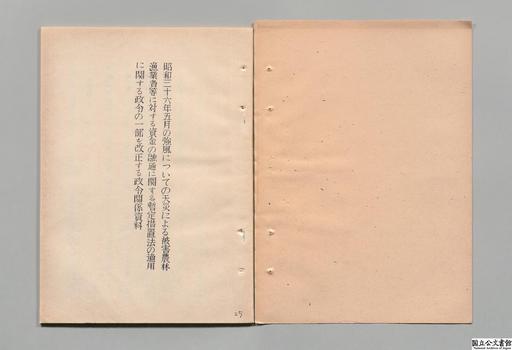 昭和三十六年五月の強風についての天災による被害農林
漁業者等に対する資金の融通に関する暫定措置法の適用
に関する政令の一部を改正する政令関係資料
25
国立公文書館
National Archives of Japan